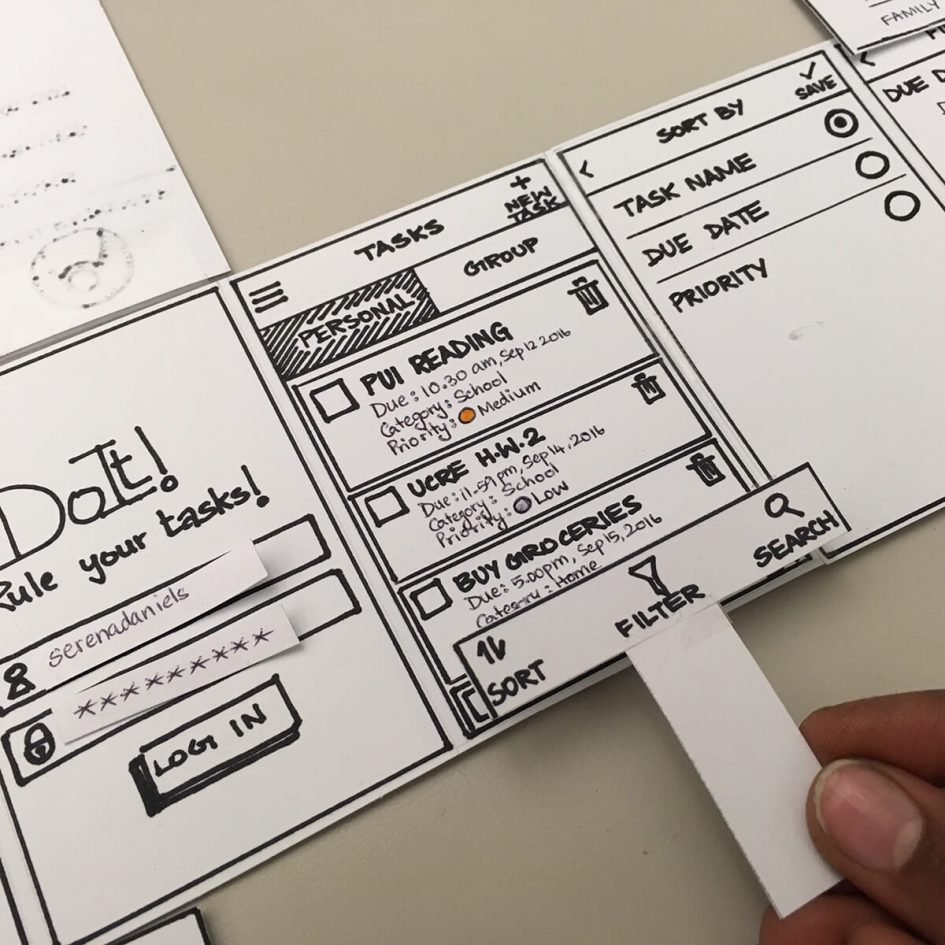 DoIt!
Rule your tasks!
serenadaniels
*********
LOG IN
TASKS
+
NEW
TASK
PERSONAL
GROUP
PUI READING
Due: 10.30 am, Sep 12 2016
Category: School
Priority: Medium
UCRE H.W.2
Due: 11.59 pm, Sep 14, 2016
Category: School
Priority: Low
BUY GROCERIES
Due: 5.00pm, Sep 15, 2016
Category: Home
SORT
FILTER
SEARCH
<
SORT BY
SAVE
TASK NAME
DUE DATE
PRIORITY
FAMILY
<
DUE